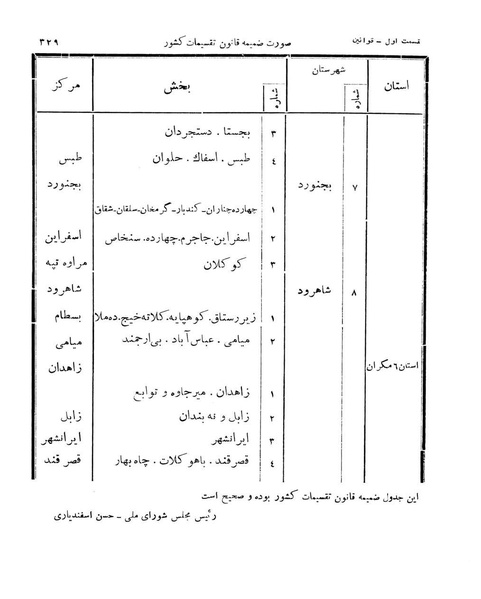 قسمت اول - قوانین صورت ضمیمه قانون تقسیمات کشور ۳۲۹
استان شهرستان بخش مرکز
شماره شماره
۳ بجستا . دستجردان
۴ طبس . اسفاك . حلوان طبس
۷ بجنورد بجنورد
۱ چهارده جناران - کندبار - گرمغان - سلقان - شقاق
۲ اسفراین . جاجرم . چهارده . سنخاص اسفراین
۳ کوکلان مراوه تپه
۸ شاهرود شاهرود
۱ زیررستاق . کوهپایه . کلاته خیج . ده ملا بسطام
۲ میامی . عباس آباد . بی‌ارجمند میامی
استان ۶ مکران زاهدان
۱ زاهدان . میرجاوه و توابع
۲ زابل و نه بندان زابل
۳ ایرانشهر ایرانشهر
۴ قصرقند . باهوکلات . چاه بهار قصر قند
این جدول ضمیمه قانون تقسیمات کشور بوده و صحیح است
رئیس مجلس شورای ملی - حسن اسفندیاری